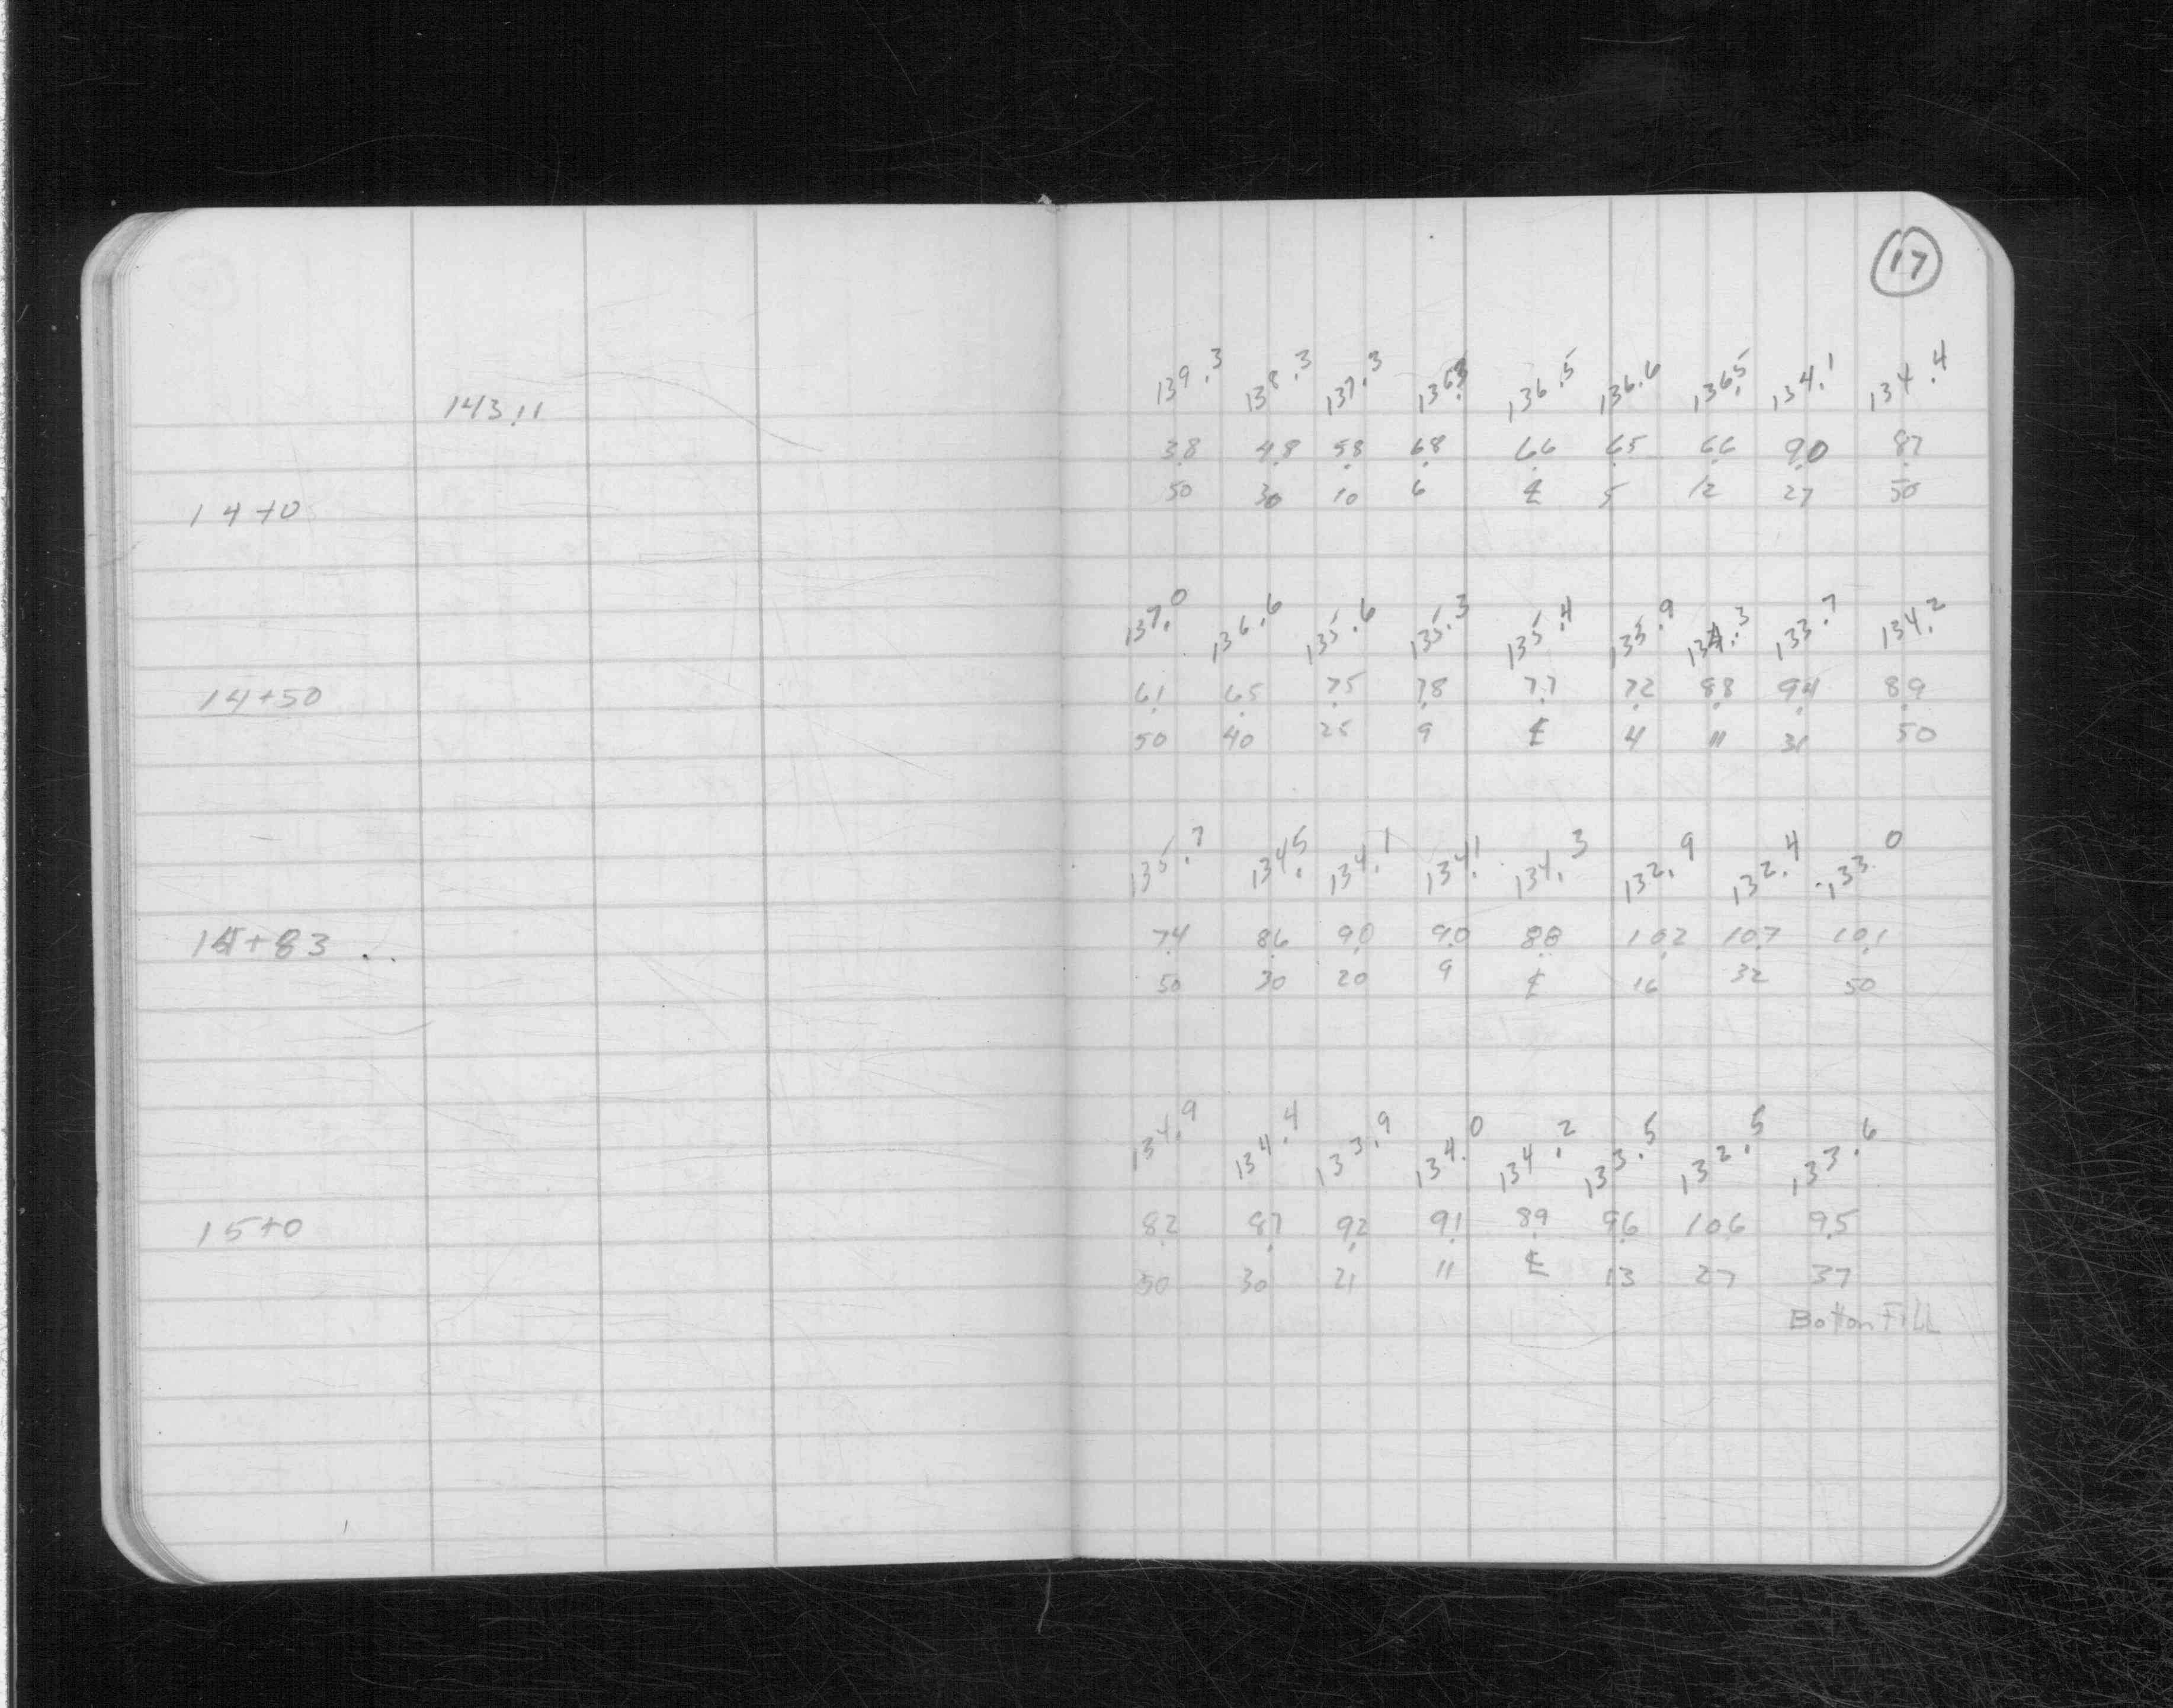 17
139.3 138.3 137.3 136.3 136.5 136.6 136.5 134.1 134.4
143.11
3.8 4.8 5.8 6.8 6.6 6.5 6.6 9.0 8.7
14+0 50 30 10 6 ℄ 5 12 27 50
137.0 136.6 135.6 135.3 135.4 135.9 134.3 133.7 134.2
14+50 6.1 6.5 7.5 7.8 7.7 7.2 8.8 9.4 8.9
50 40 25 9 ℄ 4 11 31 50
135.7 134.5 134.1 134.1 134.3 132.9 132.4 133.0
14+83 7.4 8.6 9.0 9.0 8.8 10.2 10.7 10.1
50 30 20 9 ℄ 16 32 50
134.9 134.4 133.9 134.0 134.2 133.5 132.5 133.6
15+0 8.2 8.7 9.2 9.1 8.9 9.6 10.6 9.5
50 30 21 11 ℄ 13 27 37
Bottom Fill